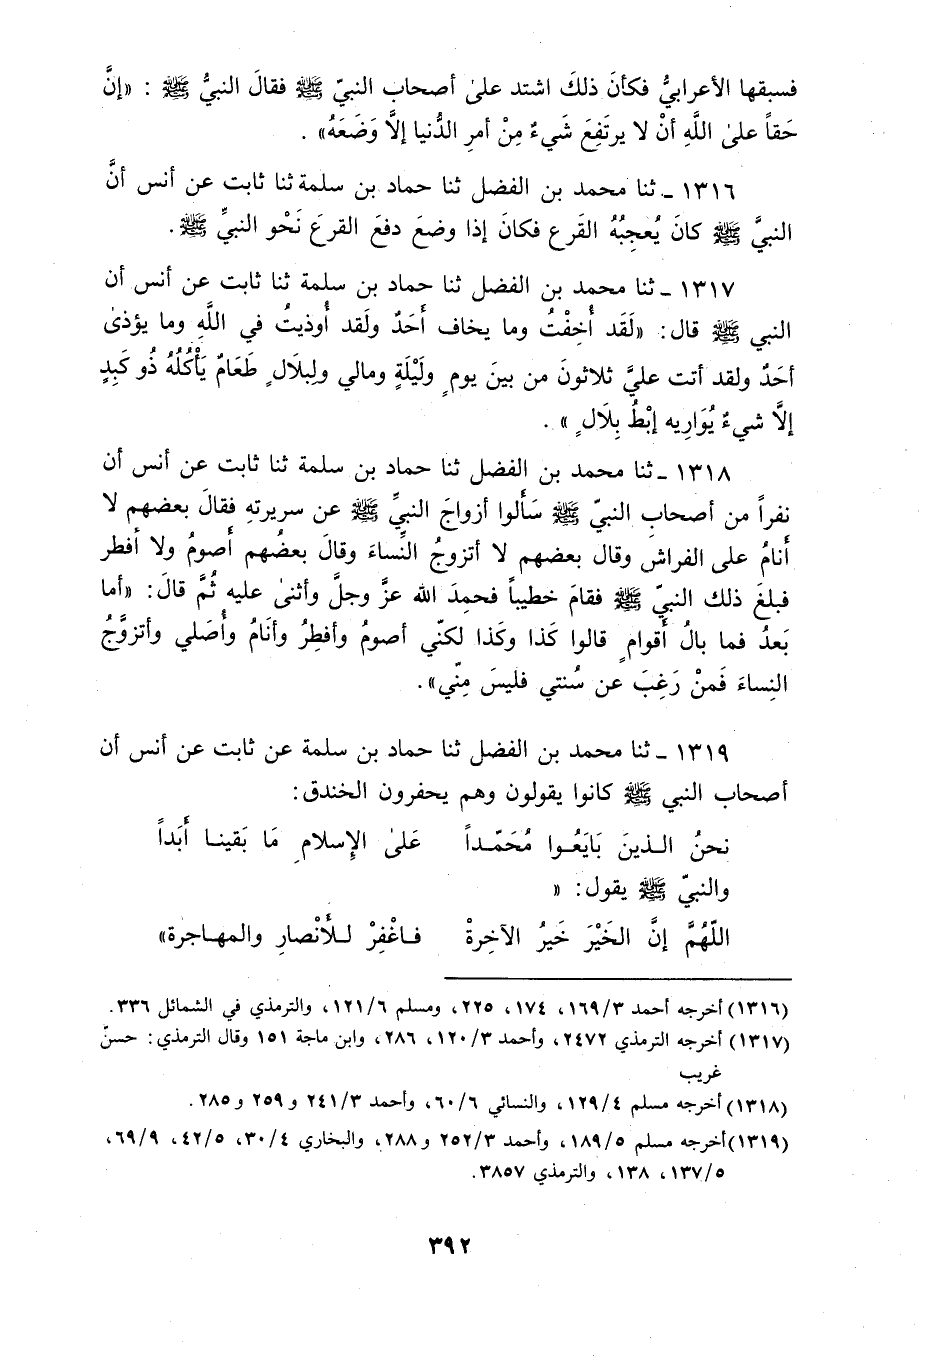 فسبقها الأعرابيُّ فكأنَ ذلكَ اشتد علىٰ أصحاب النبيّ ﷺ فقالَ النبيُّ ﷺ : «إنَّ
حَقاً علىٰ اللَّهِ أنْ لا يرتَفِعَ شَيءٌ مِنْ أمرِ الدُّنيا إلاَّ وَضَعَهُ» .
١٣١٦ ـ ثنا محمد بن الفضل ثنا حماد بن سلمة ثنا ثابت عن أنس أنَّ
النبيَّ ﷺ كانَ يُعجِبُهُ القَرع فكانَ إذا وضعَ دفعَ القرعَ نَحْو النبيِّ ﷺ.
١٣١٧ ـ ثنا محمد بن الفضل ثنا حماد بن سلمة ثنا ثابت عن أنس أن
النبي ﷺ قال: «لَقَد أُخِفْتُ وما يخاف أَحَدٌ ولَقد أُوذيتُ في اللَّهِ وما يؤذىٰ
أحَدٌ ولقد أتت عليَّ ثلاثونَ من بينَ يومٍ ولَيْلَةٍ ومالي ولِبلَالٍ طَعَامٌ يَأْكُلُهُ ذُو كَبِدٍ
إلاَّ شيءٌ يُوَارِيه إبْطُ بِلَالٍ» .
١٣١٨ ـ ثنا محمد بن الفضل ثنا حماد بن سلمة ثنا ثابت عن أنس أن
نفراً من أصحابِ النبيّ ﷺ سَأَلوا أزواجَ النبيِّ ﷺ عن سريرتهِ فقالَ بعضهم لا
أَنامُ على الفراشِ وقال بعضهم لا أتزوجُ النِّساءَ وقالَ بعضُهم أَصومُ ولا أفطر
فبلغَ ذلك النبيّ ﷺ فقامَ خطيباً فحمِدَ الله عزَّ وجلَّ وأثنىٰ عليه ثُمَّ قالَ: «أما
بَعدُ فما بالُ أَقوامٍ قالوا كَذا وكَذا لكنّي أصومُ وأفطِرُ وأنَامُ وأُصَلي وأتزوَّجُ
النِساءَ فَمنْ رَغِبَ عن سُنتي فليسَ مِنّي».
١٣١٩ ـ ثنا محمد بن الفضل ثنا حماد بن سلمة عن ثابت عن أنس أن
أصحاب النبي ﷺ كانوا يقولون وهم يحفرون الخندق:
نحنُ الـذينَ بَايَعُـوا مُحَمّـداً عَلىٰ الإِسلامِ مَا بَقينـا أَبَداً
والنبيّ ﷺ يقول: «
اللّهُمَّ إنَّ الخَيْرَ خَيرُ الآخِرةْ فـاغْفِرْ لـلأَنْصارِ والمهـاجرة»
(١٣١٦) أخرجه أحمد ١٦٩/٣، ١٧٤، ٢٢٥، ومسلم ١٢١/٦، والترمذي في الشمائل ٣٣٦.
(١٣١٧) أخرجه الترمذي ٢٤٧٢، وأحمد ١٢٠/٣، ٢٨٦، وابن ماجة ١٥١ وقال الترمذي: حسنٌ
غريب
(١٣١٨) أخرجه مسلم ١٢٩/٤، والنسائي ٦٠/٦، وأحمد ٢٤١/٣ و ٢٥٩ و ٢٨٥.
(١٣١٩) أخرجه مسلم ١٨٩/٥، وأحمد ٢٥٢/٣ و ٢٨٨، والبخاري ٣٠/٤، ٤٢/٥، ٦٩/٩،
١٣٧/٥، ١٣٨، والترمذي ٣٨٥٧.
٣٩٢